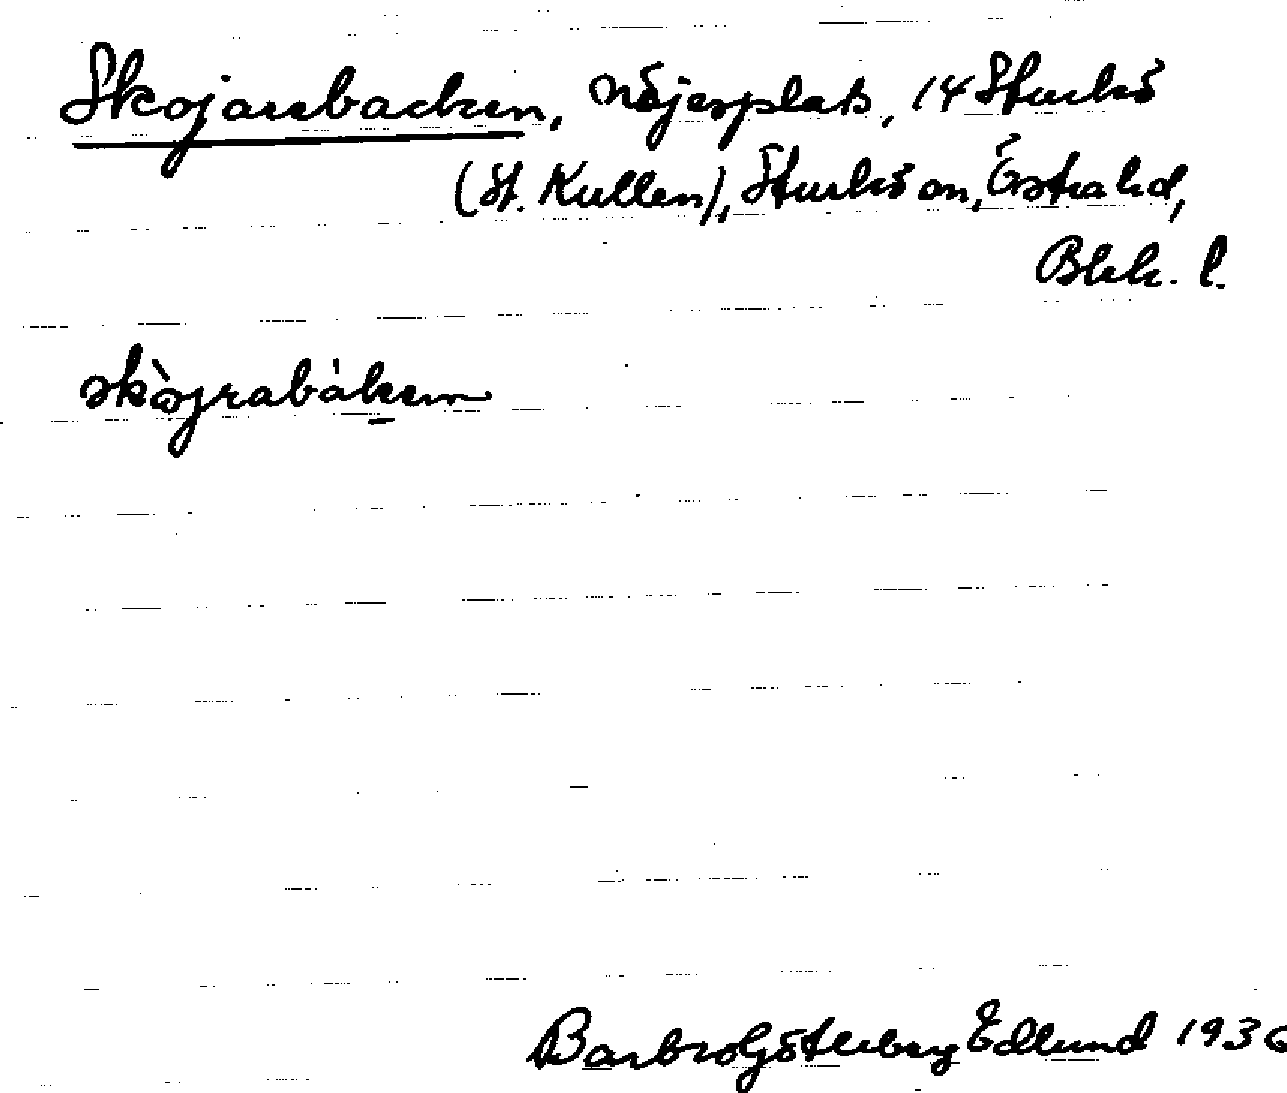 Skojarebacken, nöjesplats, 14 Sturkö
(St. Kullen), Sturkö sn, Östra hd,
Blek. l.
skòjrabákken
Barbro Götlieberg Edlund 1936